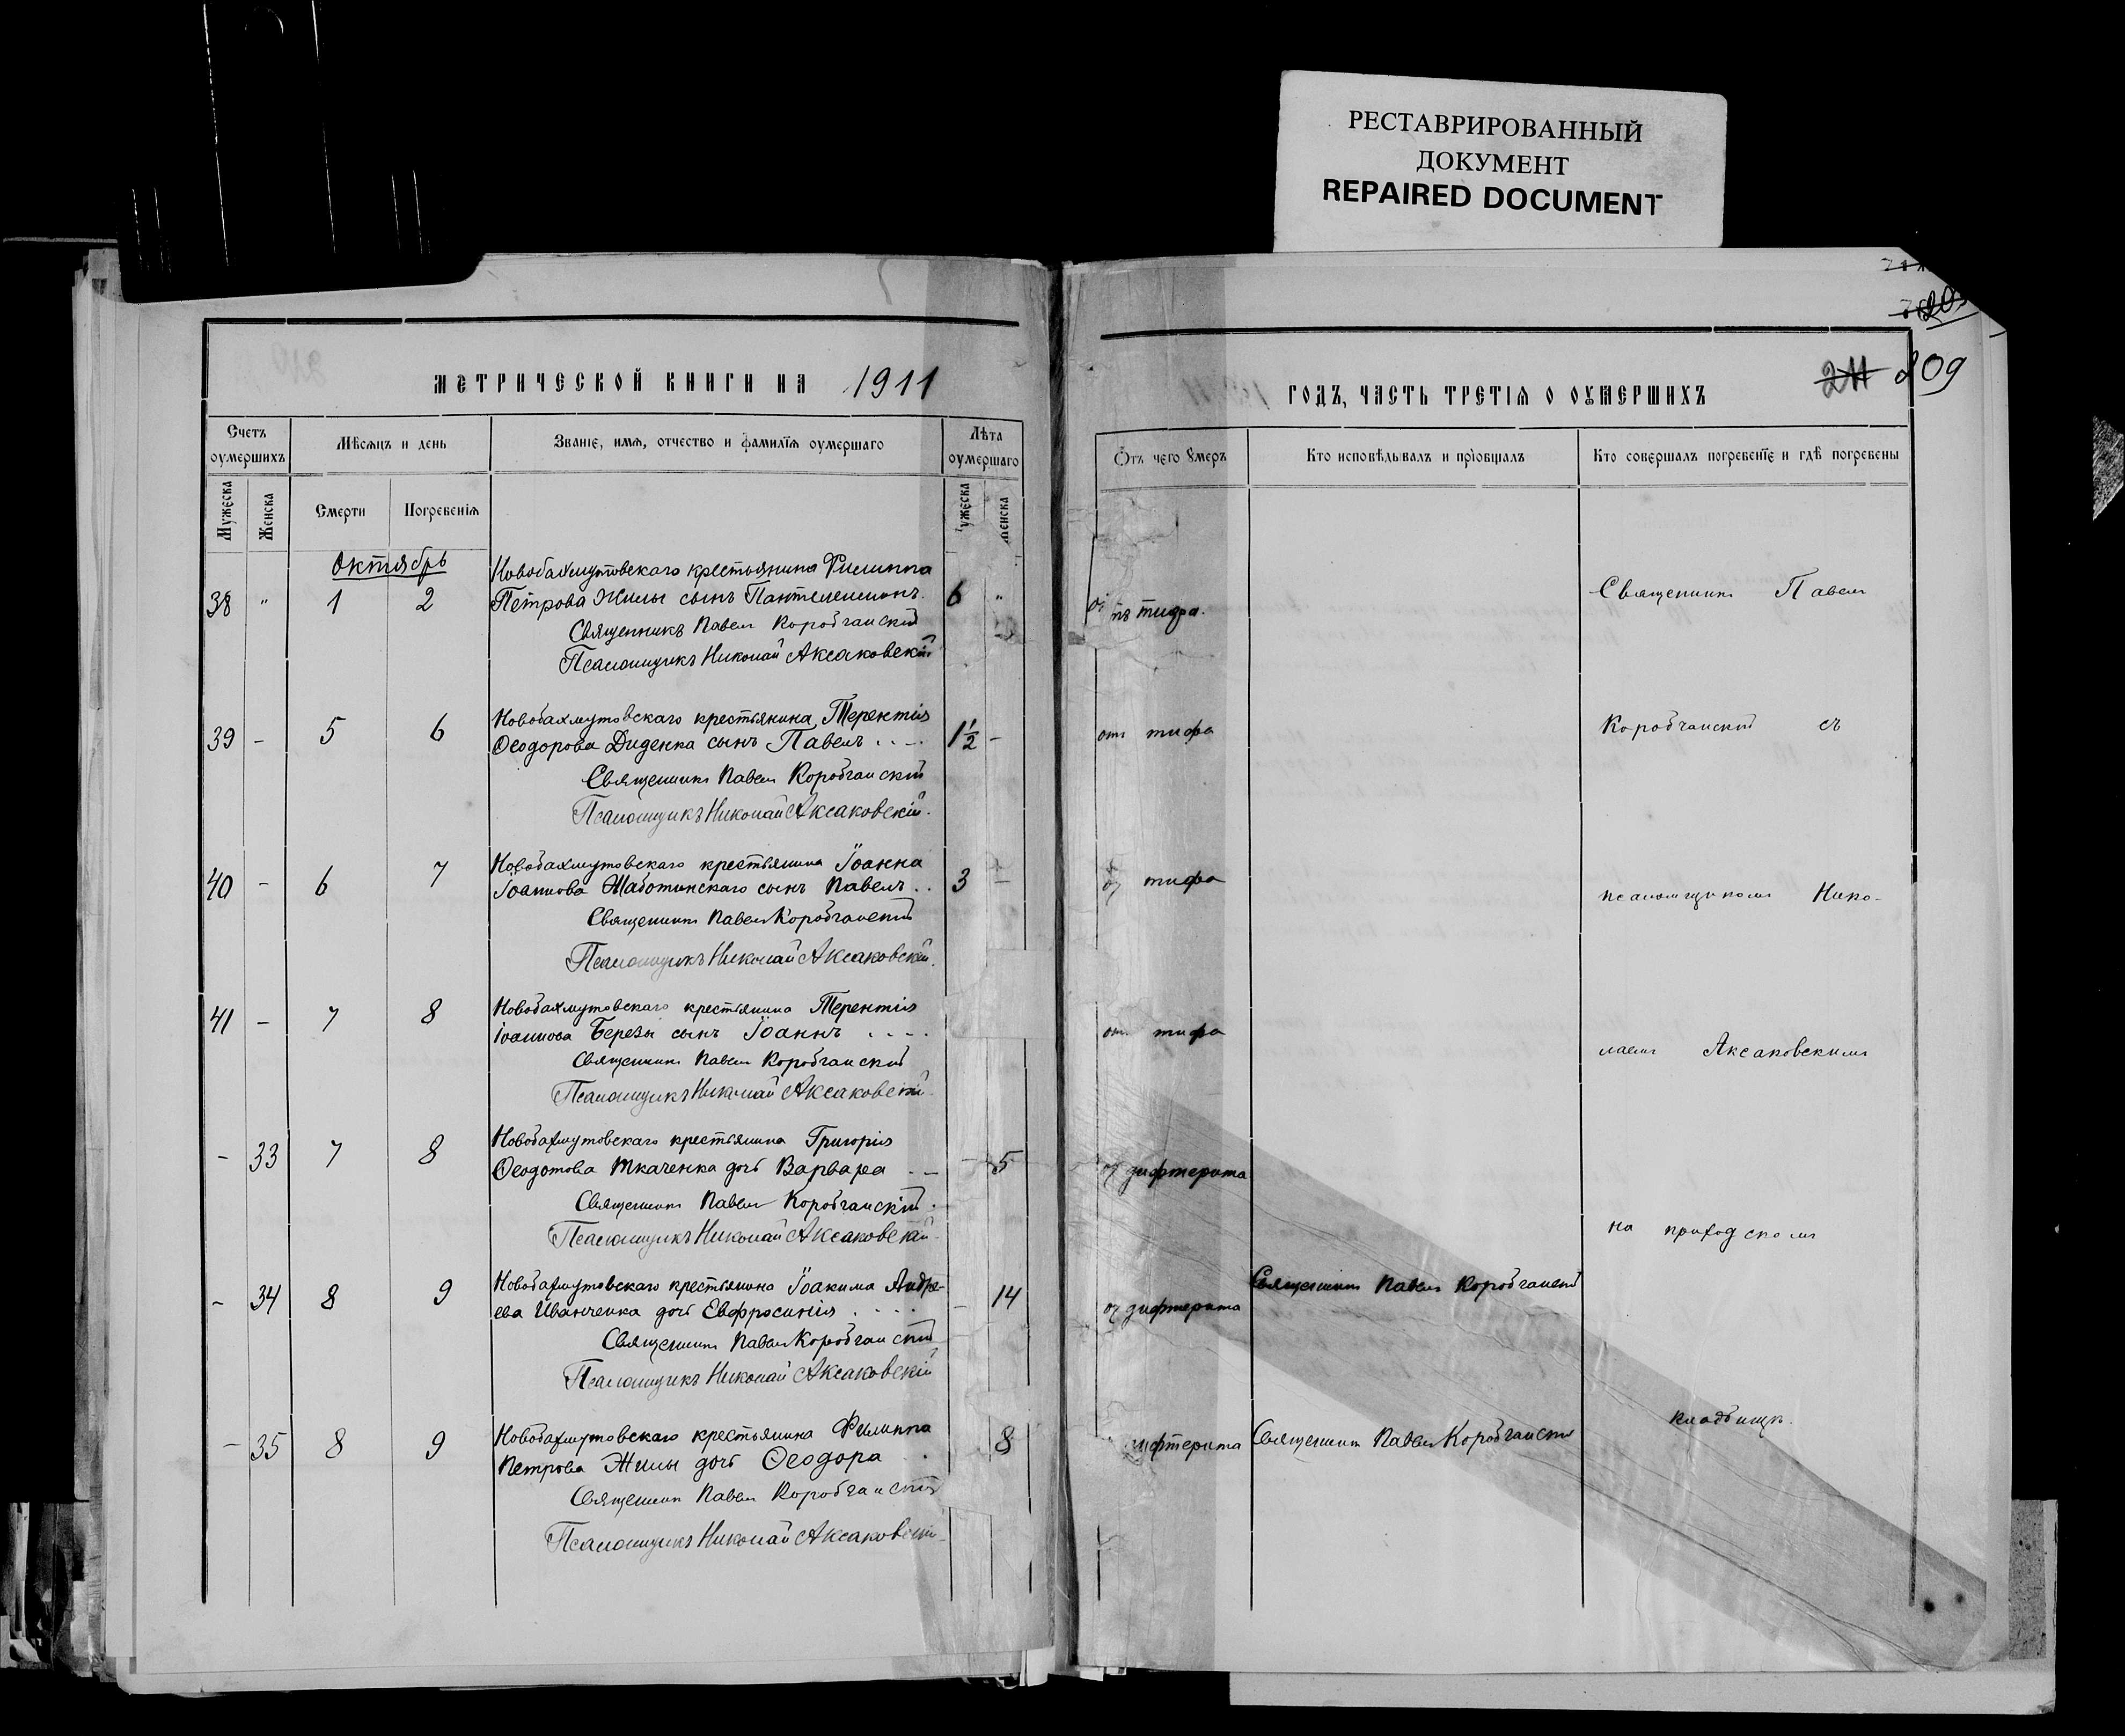 РЕСТАВРИРОВАННЫЙ
ДОКУМЕНТ
REPAIRED DOCUMENT
МЕТРИЧЕСКОЙ КНИГИ НА 1911
Счетъ оумершихъ
Мѣсяцъ и день
Званіе, имя, отчество и фамилія оумершаго
Лѣта оумершаго
Мужеска
Женска
Смерти
Погребенія
ужеска
енска
Октябрь
38 " 1 2
Новобахмутовскаго крестьянина Филиппа
Петрова Жилы сынъ Пантелеимонъ. 6 "
Священникъ Павелъ Коробчанскій
Псаломщикъ Николай Аксаковскій
39 - 5 6
Новобахмутовскаго крестьянина Терентія
Ѳеодорова Диденка сынъ Павелъ 1½ -
Священникъ Павелъ Коробчанскій
Псаломщикъ Николай Аксаковскій.
40 - 6 7
Новобахмутовскаго крестьянина Іоанна
Іоаннова Жаботинскаго сынъ Павелъ 3 -
Священникъ Павелъ Коробчанскій
Псаломщикъ Николай Аксаковскій.
41 - 7 8
Новобахмутовскаго крестьянина Терентія
Іоаннова Березы сынъ Іоаннъ
Священникъ Павелъ Коробчанскій
Псаломщикъ Николай Аксаковскій
- 33 7 8
Новобахмутовскаго крестьянина Григорія
Ѳеодотова Ткаченка дочь Варвара - 5
Священникъ Павелъ Коробчанскій.
Псаломщикъ Николай Аксаковскій
- 34 8 9
Новобахмутовскаго крестьянина Іоакима Андре-
ева Иванченка дочь Евфросинія - 14
Священникъ Павелъ Коробчанскій
Псаломщикъ Николай Аксаковскій
- 35 8 9
Новобахмутовскаго крестьянина Филиппа
Петрова Жилы дочь Ѳеодора 8
Священникъ Павелъ Коробчанскій
Псаломщикъ Николай Аксаковскій
211 209
ГОДЪ, ЧАСТЬ ТРЕТІЯ О ОУМЕРШИХЪ
Отъ чего умеръ
Кто исповѣдывалъ и пріобщалъ
Кто совершалъ погребеніе и гдѣ погребены
отъ тифа.
Священникъ Павелъ
отъ тифа
Коробчанскій съ
от тифа
псаломщикомъ Нико-
отъ тифа
лаемъ Аксаковскимъ
от дифтерита
на приходскомъ
от дифтерита
Священникъ Павелъ Коробчанскій
ифтерита
Священникъ Павелъ Коробчанскій
кладбищѣ.